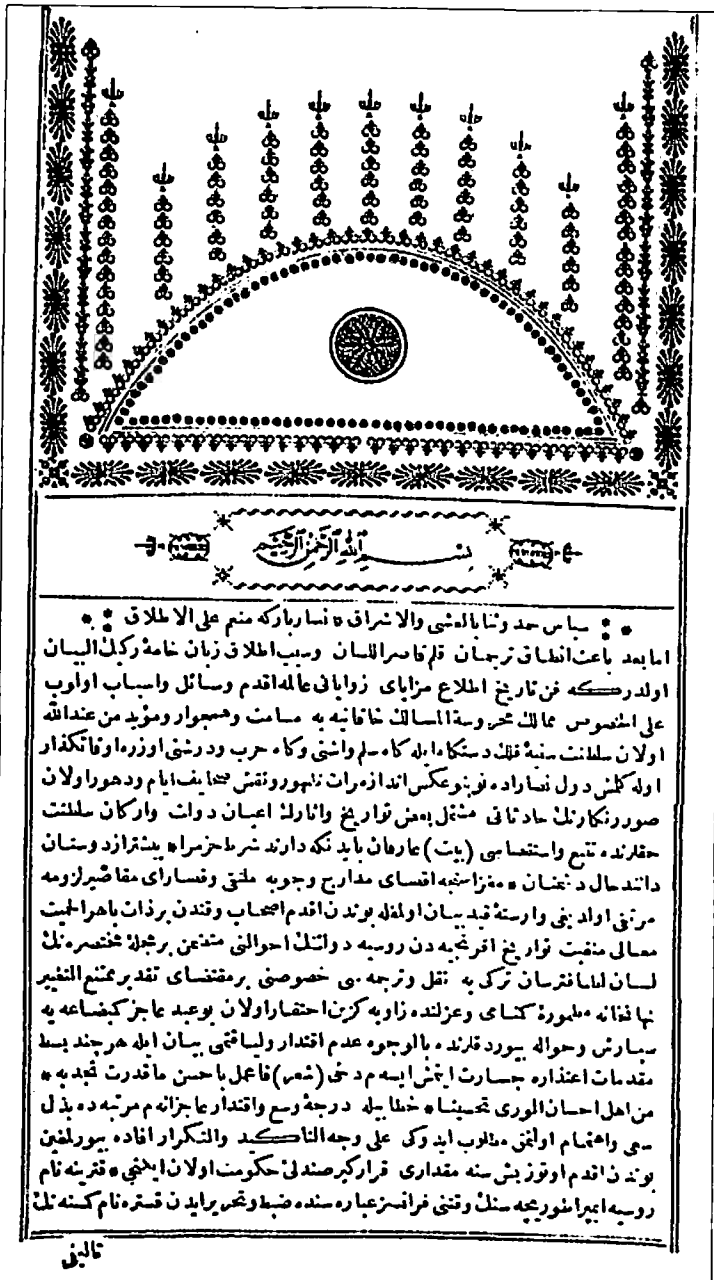 بسم الله الرحمن الرحيم
سپاس حمد وثنا بالعشى والاشراق * نسار باركه منعم على الاطلاق
اما بعد باعث انطاق ترجمان قلم قاصر اللسان وسبب اطلاق زبان خامهٔ ركيك البيان
اولدركه فن تاريخ اطلاع مزاياى زواياى عالمه اقدم وسائل واسباب اولوب
على الخصوص ممالك محروسة المسالك خاقانيه به مسامت وهمجوار ومؤيد من عند الله
اولان سلطنت سنيه نك دستكاه ايله كاه سلم واشتى وكاه حرب ودرشتى اوزره اوقاتكذار
اوله كلمش دول نصاراده نوبنو عكس انداز مرات ظهور ونقش صحايف ايام ودهور اولان
صور ورنكارنك حادثاتى مشتمل بعض تواريخ واثارك اعيان دولت واركان سلطنت
حقلرنده تتبع واستقصاسى (بيت) عارفان بايد نكه دارند شرط حزم را * پيشتر از دوستان
دانند حال دشمنان * مغزاسنجه اقصاى مدارج وجوبه ملتقى وقصاراى مقاصير لزومه
مرتقى اولديغى وارستهٔ قيد بيان اولمغله بوندن اقدم اصحاب وقتدن بر ذات باهر الحميت
معالى منقبت تواريخ افرنجيه دن روسيه دولتنك احوالنى متضمن بر مجلهٔ مختصره نك
لسان لطافترسان تركى به نقل وترجمه سى خصوصنى بر مقتضاى تقدير ممتنع التغيير
نهانخانه مطمورهٔ كمنامى وعزلنده زاويه كزين احتقار اولان بو عبد عاجز كم بضاعه يه
سپارش وحواله بيوردقلرنده بالوجوه عدم اقتدار ولياقتمى بيان ايله هر چند بسط
مقدمات اعتذاره جسارت ايتمش ايسه م دخى (شعر) فاعمل باحسن ما قدرت تجد به *
من اهل احسان الورى تحسينا * خطابيله درجهٔ وسع واقتدار عاجزانه م مرتبه ده بذل
سعى واهتمام اولنمق مطلوب ايدوكى على وجه التأكيد والتكرار افاده بيورلمغين
بوندن اقدم اوتوز بش سنه مقدارى قرار كير صندلئ حكومت اولان ايكنجى * قترينه نام
روسيه ايمپراطوريچه سنك وقتنى فرانسز عباره سنده ضبط وتحرير ايدن قستره نام كمسنه نك
تأليفى